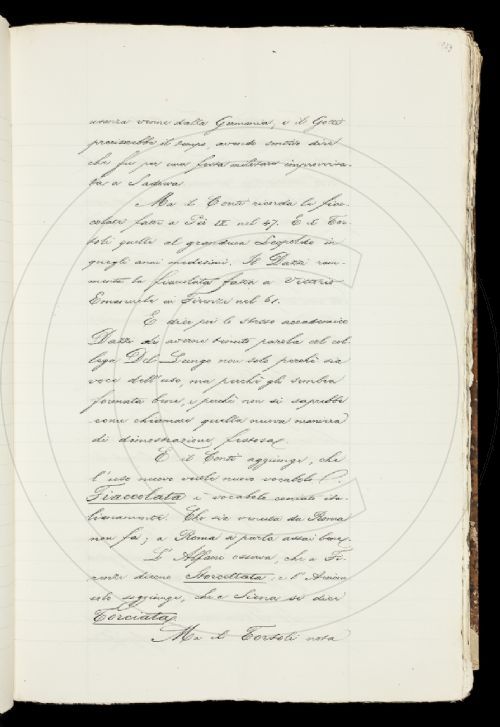 usanza venne dalla Germania, e il Gotti
preciserebbe il tempo, avendo sentito dire
che fu per una festa militare improvvisa-
ta a Sadowa.
Ma il Conti ricorda le fiac-
colate fatte a Pio IX nel 47. E il Tor-
toli quelle al granduca Leopoldo in
quegli anni medesimi. Il Dazzi ram-
menta la fiaccolata fatta a Vittorio
Emanuele in Firenze nel 61.
E dice poi lo stesso accademico
Dazzi di averne tenuto parola col col-
lega Del Lungo non solo perchè sia
voce dell'uso, ma perchè gli sembra
formata bene, e perchè non si saprebbe
come chiamare quella nuova maniera
di dimostrazione festosa.
E il Conti aggiunge, che
l'uso nuovo vuole nuovo vocabolo.
Fiaccolata è vocabolo coniato ita-
lianamente. Che sia venuta da Roma
non fa; a Roma si parla assai bene.
L'Alfani osserva, che a Fi-
renze dicono Storcettata, e l'Arcicon-
solo soggiunge, che a Siena si dice
Torciata.
Ma il Tortoli nota